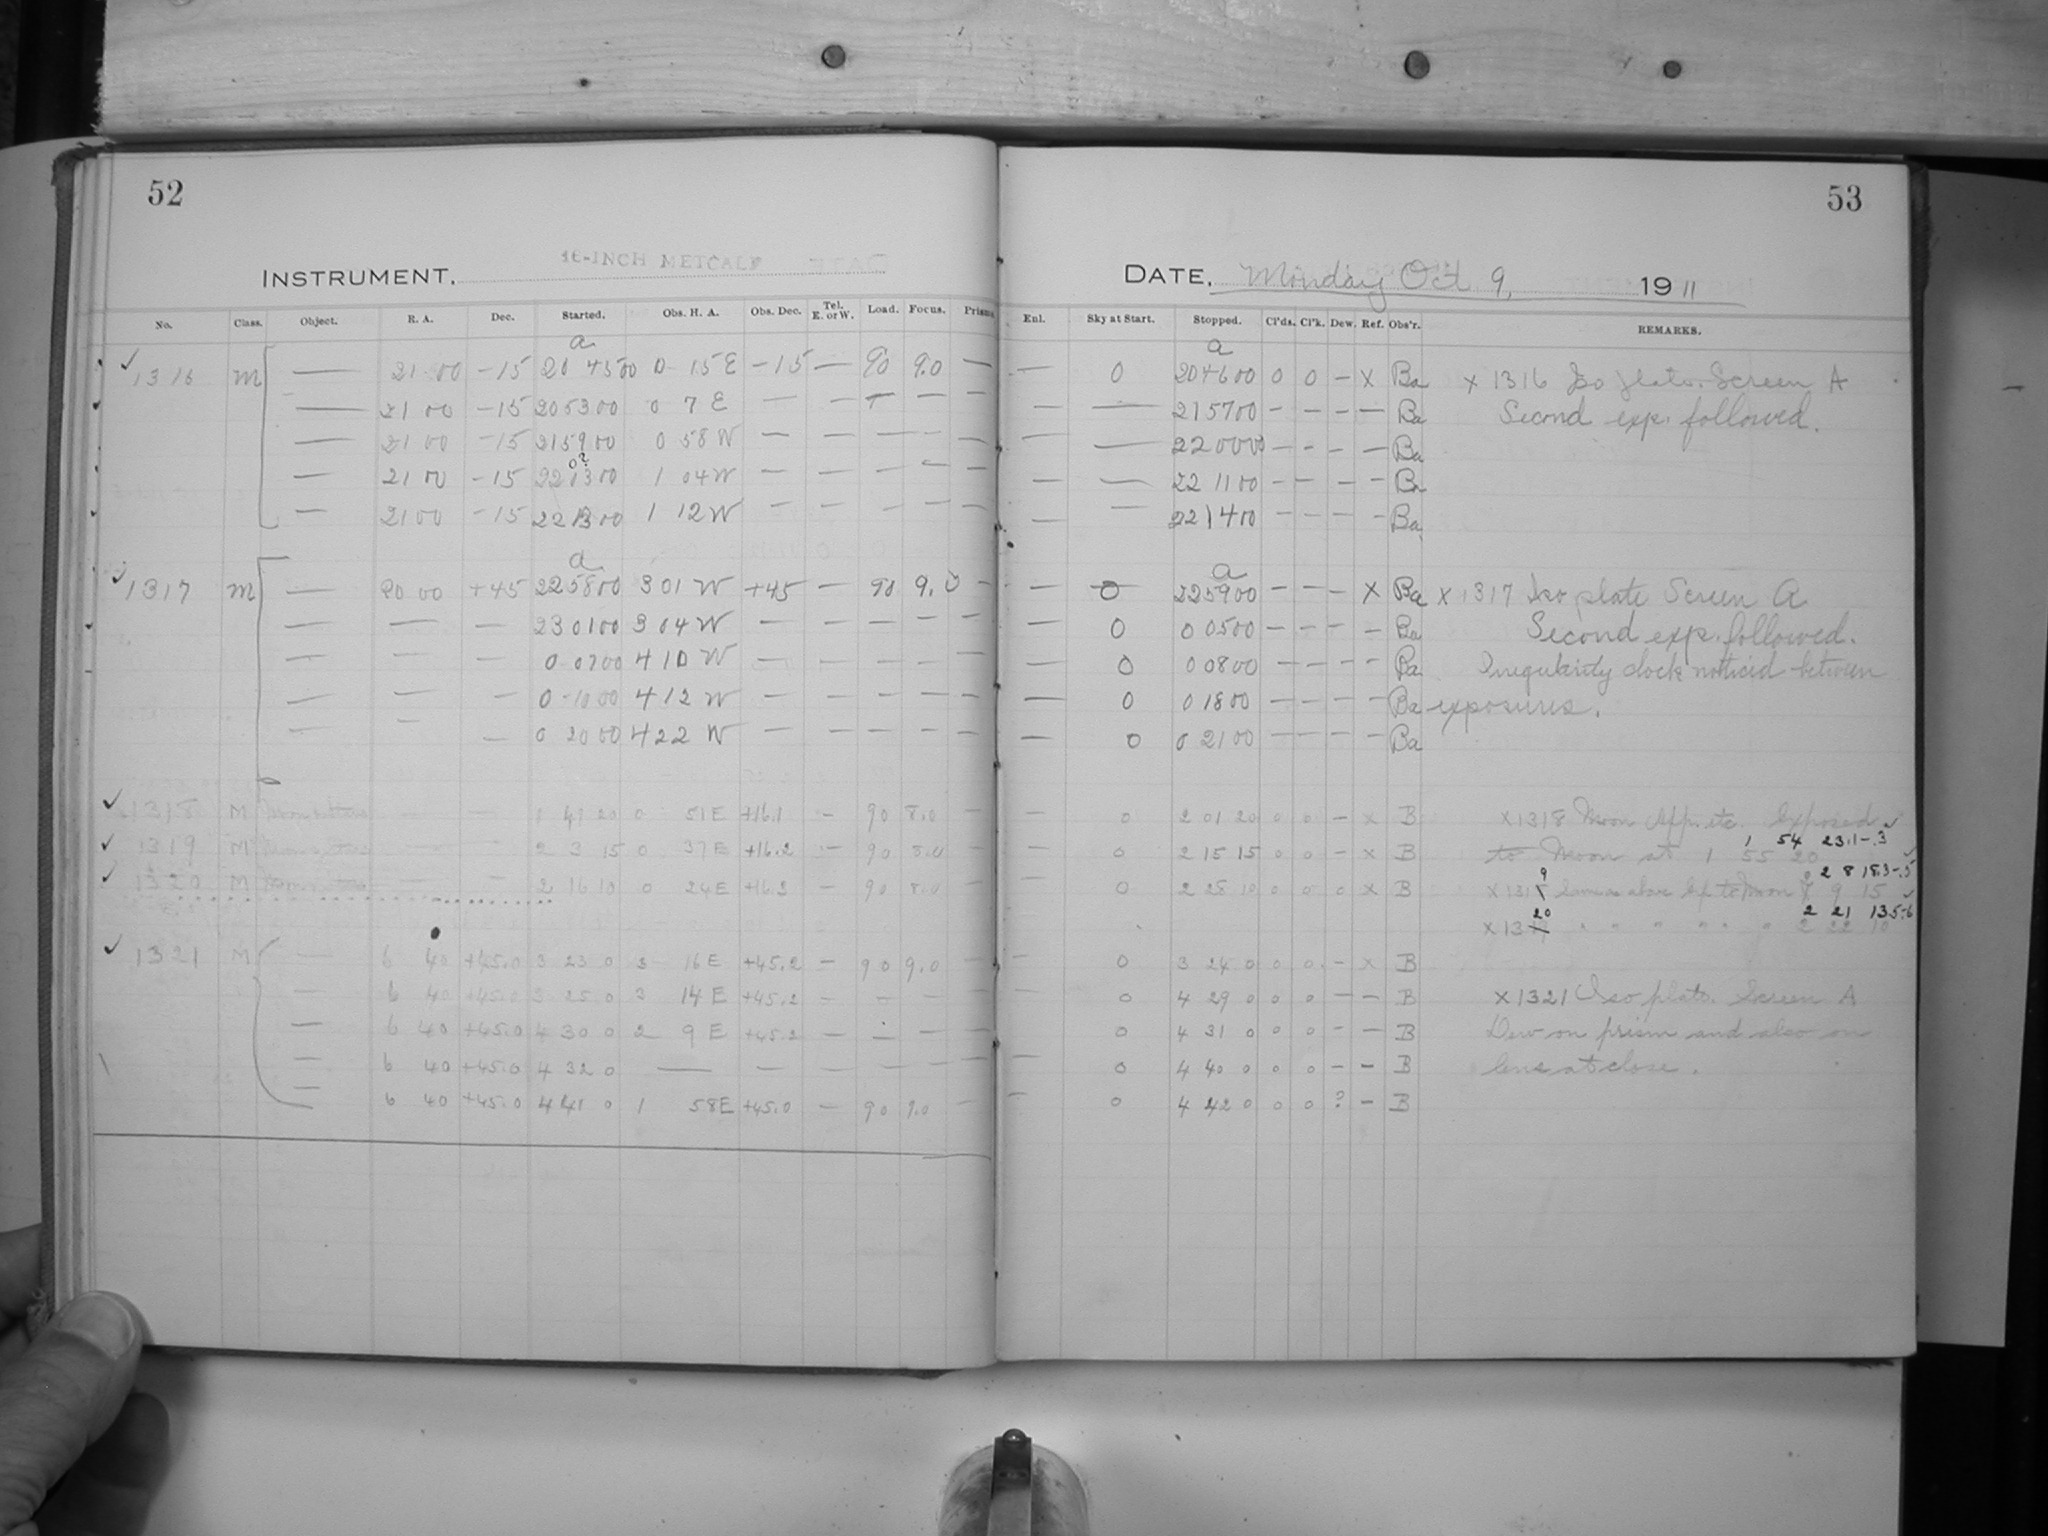 52
53
INSTRUMENT. 16-INCH METCALF
DATE. Monday Oct 9, 1911
No. Class. Object. R. A. Dec. Started. Obs. H. A. Obs. Dec. Tel. E. or W. Load. Focus. Prism Enl. Sky at Start. Stopped. Cl'ds. Cl'k. Dew. Ref. Obs'r. REMARKS.
a a
✓ 1316 M — 21 00 −15 20 45 00 0 15 E −15 — 90 9.0 — — 0 20 46 00 0 0 — X Ba X 1316 Iso plate. Screen A
— 21 00 −15 20 53 00 0 7 E — — — — — — — 21 57 00 — — — — Ba Second exp. followed.
— 21 00 −15 21 59 00 0 58 W — — — — — — — 22 00 00 — — — — Ba
0?
— 21 00 −15 22 03 00 1 04 W — — — — — — — 22 11 00 — — — — Ba
— 21 00 −15 22 13 00 1 12 W — — — — — — — 22 14 00 — — — — Ba
a a
✓ 1317 M — 20 00 +45 22 58 00 3 01 W +45 — 90 9.0 — — 0 22 59 00 — — — X Ba X 1317 Iso plate Screen A
— — — 23 01 00 3 04 W — — — — — — 0 0 05 00 — — — — Ba Second exp. followed.
— — — 0 07 00 4 10 W — — — — — — 0 0 08 00 — — — — Ba Irregularity clock noticed between
— — — 0 10 00 4 12 W — — — — — — 0 0 18 00 — — — — Ba exposures.
— — — 0 20 00 4 22 W — — — — — — 0 0 21 00 — — — — Ba
✓ 1318 M — — 1 49 20 0 51 E +16.1 — 90 8.0 — — 0 2 01 20 0 0 — X B X1318 Moon App. etc. Exposed ✓
1 54 23.1−.3
✓ 1319 M — — 2 3 15 0 37 E +16.2 — 90 8.0 — — 0 2 15 15 0 0 — X B to Moon at 1 55 20 ✓
9 2 8 18.3−.5
✓ 1320 M — — 2 16 10 0 24 E +16.2 — 90 8.0 — — 0 2 28 10 0 0 0 X B X 131 Same as above Exp. to Moon 9 15 ✓
20 2 21 13.5−.6
X 13 " " " " " " 2 22 10
✓ 1321 M — 6 40 +45.0 3 23 0 3 16 E +45.2 — 90 9.0 — — 0 3 24 0 0 0 — X B
— 6 40 +45.0 3 25 0 3 14 E +45.2 — — — — — 0 4 29 0 0 0 — — B X1321 Iso plate. Screen A
— 6 40 +45.0 4 30 0 2 9 E +45.2 — — — — — 0 4 31 0 0 0 — — B Dew on prism and also on
— 6 40 +45.0 4 32 0 — — — — — — — 0 4 40 0 0 0 — — B lens at close.
— 6 40 +45.0 4 41 0 1 58 E +45.0 — 90 9.0 — — 0 4 42 0 0 0 ? — B